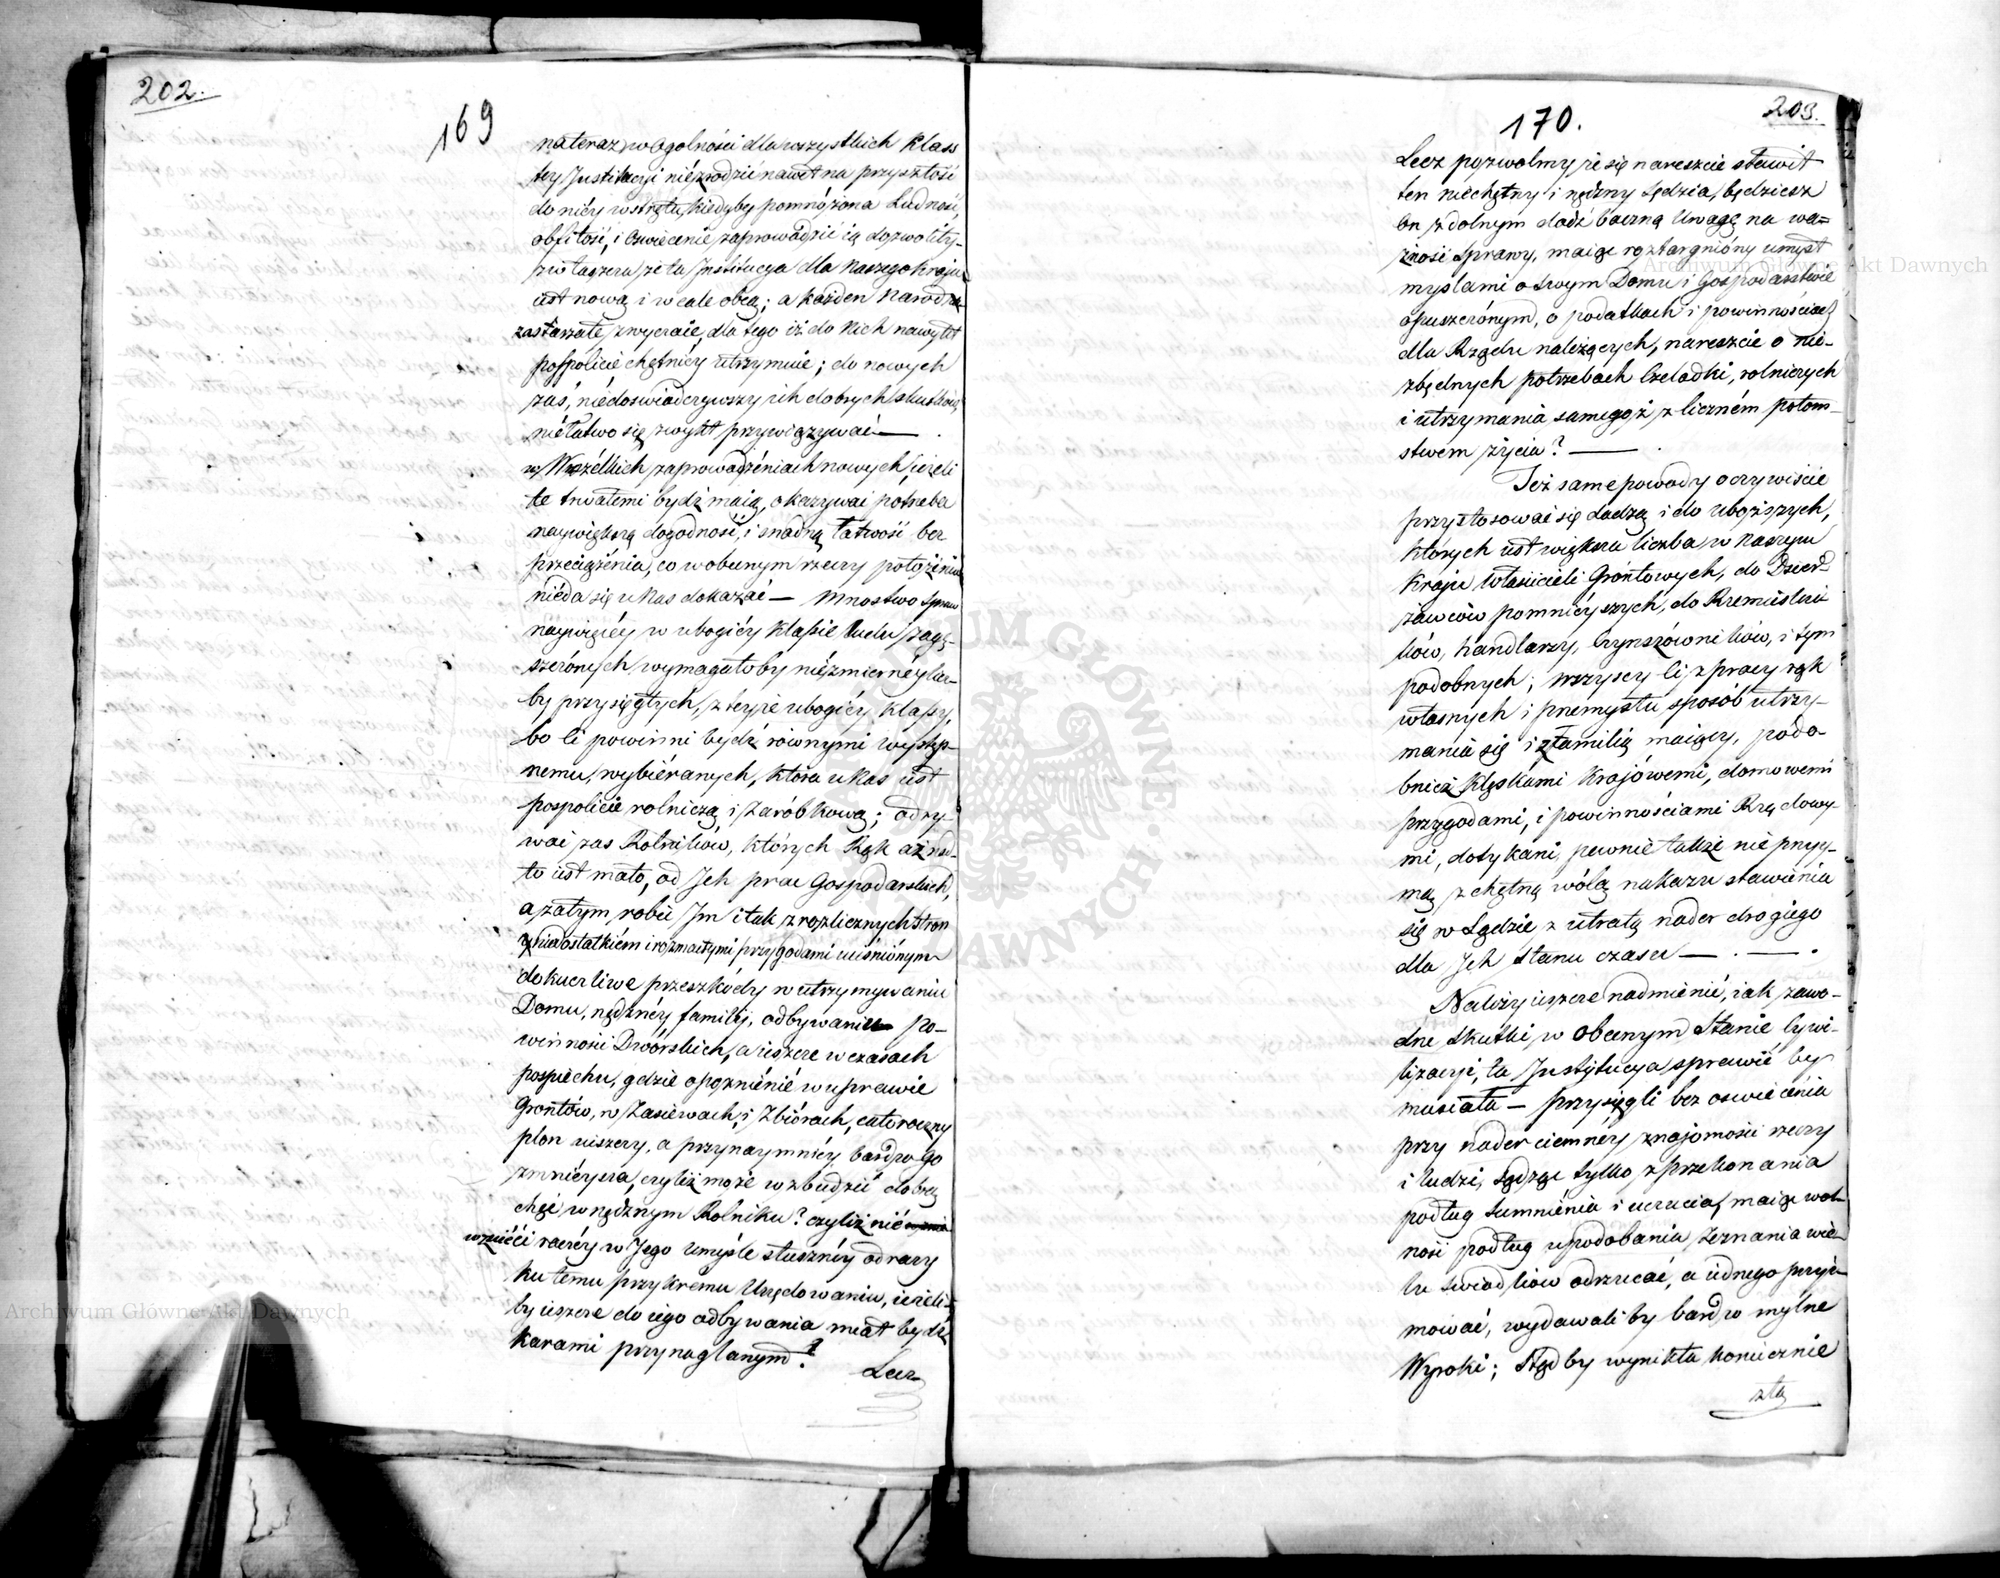 202.
169
na teraz w ogolności dla wszystkich klass
tey Justitucyi niezrodzić nawet na przyszłość
do niéy wstrętu, kiedyby pomnóżona Ludność,
obfitość, i Oświecenie zaprowadzić ią dozwoliły
zwłaszcza że ta Instytucya dla Naszego Kraju
iest nową i wcale obcą; a każden Naród
zastarzałe zwyczaie, dla tego iż do Nich nawykł
pospolicie chętniéy utrzymuie; do nowych
zaś, niédoświadczywszy ich dobrych skutków,
niełatwo się zwykł przywięzywać —
w Wszélkich zaprowadzéniach nowych, ieżeli
te trwałemi bydź maią, okazywać potrzeba
naywiększą dogodność, i snadną łatwość bez
przeciążénia, co w obecnym rzeczy położéniu
nieda się u Nas dokazać — Mnostwo spraw
naywięcéy w ubogiéy klassie Ludu zagę-
szczónych, wymagałoby niézmiernéy licz-
by przysięgłych, z teyże ubogiéy klassy,
bo ci powinni bydź równymi występ-
nemu, wybiéranych, która u Nas iest
pospolicie rolniczą i zaróbkową; odry-
wać zas Rolników, których Rąk aż nad-
to iest mało, od Jch prac Gospodarskich,
a zatym robić Jm i tak z rozlicznych stron
z niedostatkiém i rozmaitymi przygodami uciśniónym
dokuczliwe przeszkódy w utrzymywaniu
Domu, nędznéy familij, odbywaniu po-
winności Dworskich, a ieszcze w czasach
pospiechu, gdzie opóźniénié w uprawie
Grontów, w Zasiewach, i Zbiórach, całoroczny
plon niszczy, a przynaymniéy bardzo go
zmniéysza, czyliż może wzbudzić dobrą
chęć w nędznym Rolniku? czyliż nié
wznieci raczéy w Jego Umyśle słusznéy odrazy
ku temu przykremu Urzędowaniu, ieżeli-
by ieszcze do iego odbywania miał bydź
karami przynaglanym?
Lecz
170.
203.
Lecz pozwolmy że się nareszcie stawił
ten niechętny i nędzny Sędzia, będziesz
On zdolnym dadź baczną Uwagę na wa-
żność Sprawy, maiąc roztargnióny umysł
myslami o swym Domu i Gospodarstwie
opuszczónym, o podatkach i powinnościach
dla Rządu należących, nareszcie o nie-
zbędnych potrzebach Czeladki, rolniczych
i utrzymania samegoż z liczném potom-
stwem życia? —
Też same powody oczywiście
przystosować się dadzą i do uboższych,
których iest większa liczba w Naszym
Kraju Właścicieli Gróntowych, do Dzier-
żawców pomniéyszych, do Rzemieślni-
ków, handlarzy, Czynszówników, i tym
podobnych; wszyscy ci z pracy rąk
własnych i przemysłu sposób utrzy-
mania się i z familią maiący, podo-
bnież klęskami Krajówemi, domowemi
przygodami, i powinnościami Rządowy-
mi, dotykani, pewnie także nie przyy-
mą z chętną wólą nakazu stawienia
się w Sądzie z utratą nader drogiego
dla Jch stanu czasu —
Należy ieszcze nadmiénić, iak szko-
dne skutki, w obecnym stanie Cywi-
lizacyi, ta Justytucya sprawić by
musiała — przysięgli bez oswiecénia
przy nader ciemnéy znajomości rzeczy
i ludzi, sądząc tylko z przekonania
podług sumniénia i uczucia, maiąc wol-
ność podług upodobania Zeznania wie-
lu swiadków odrzucać, a iednego przyi-
mować, wydawaliby bardzo mylne
Wyroki; Stąd by wynikła koniecznie
zła